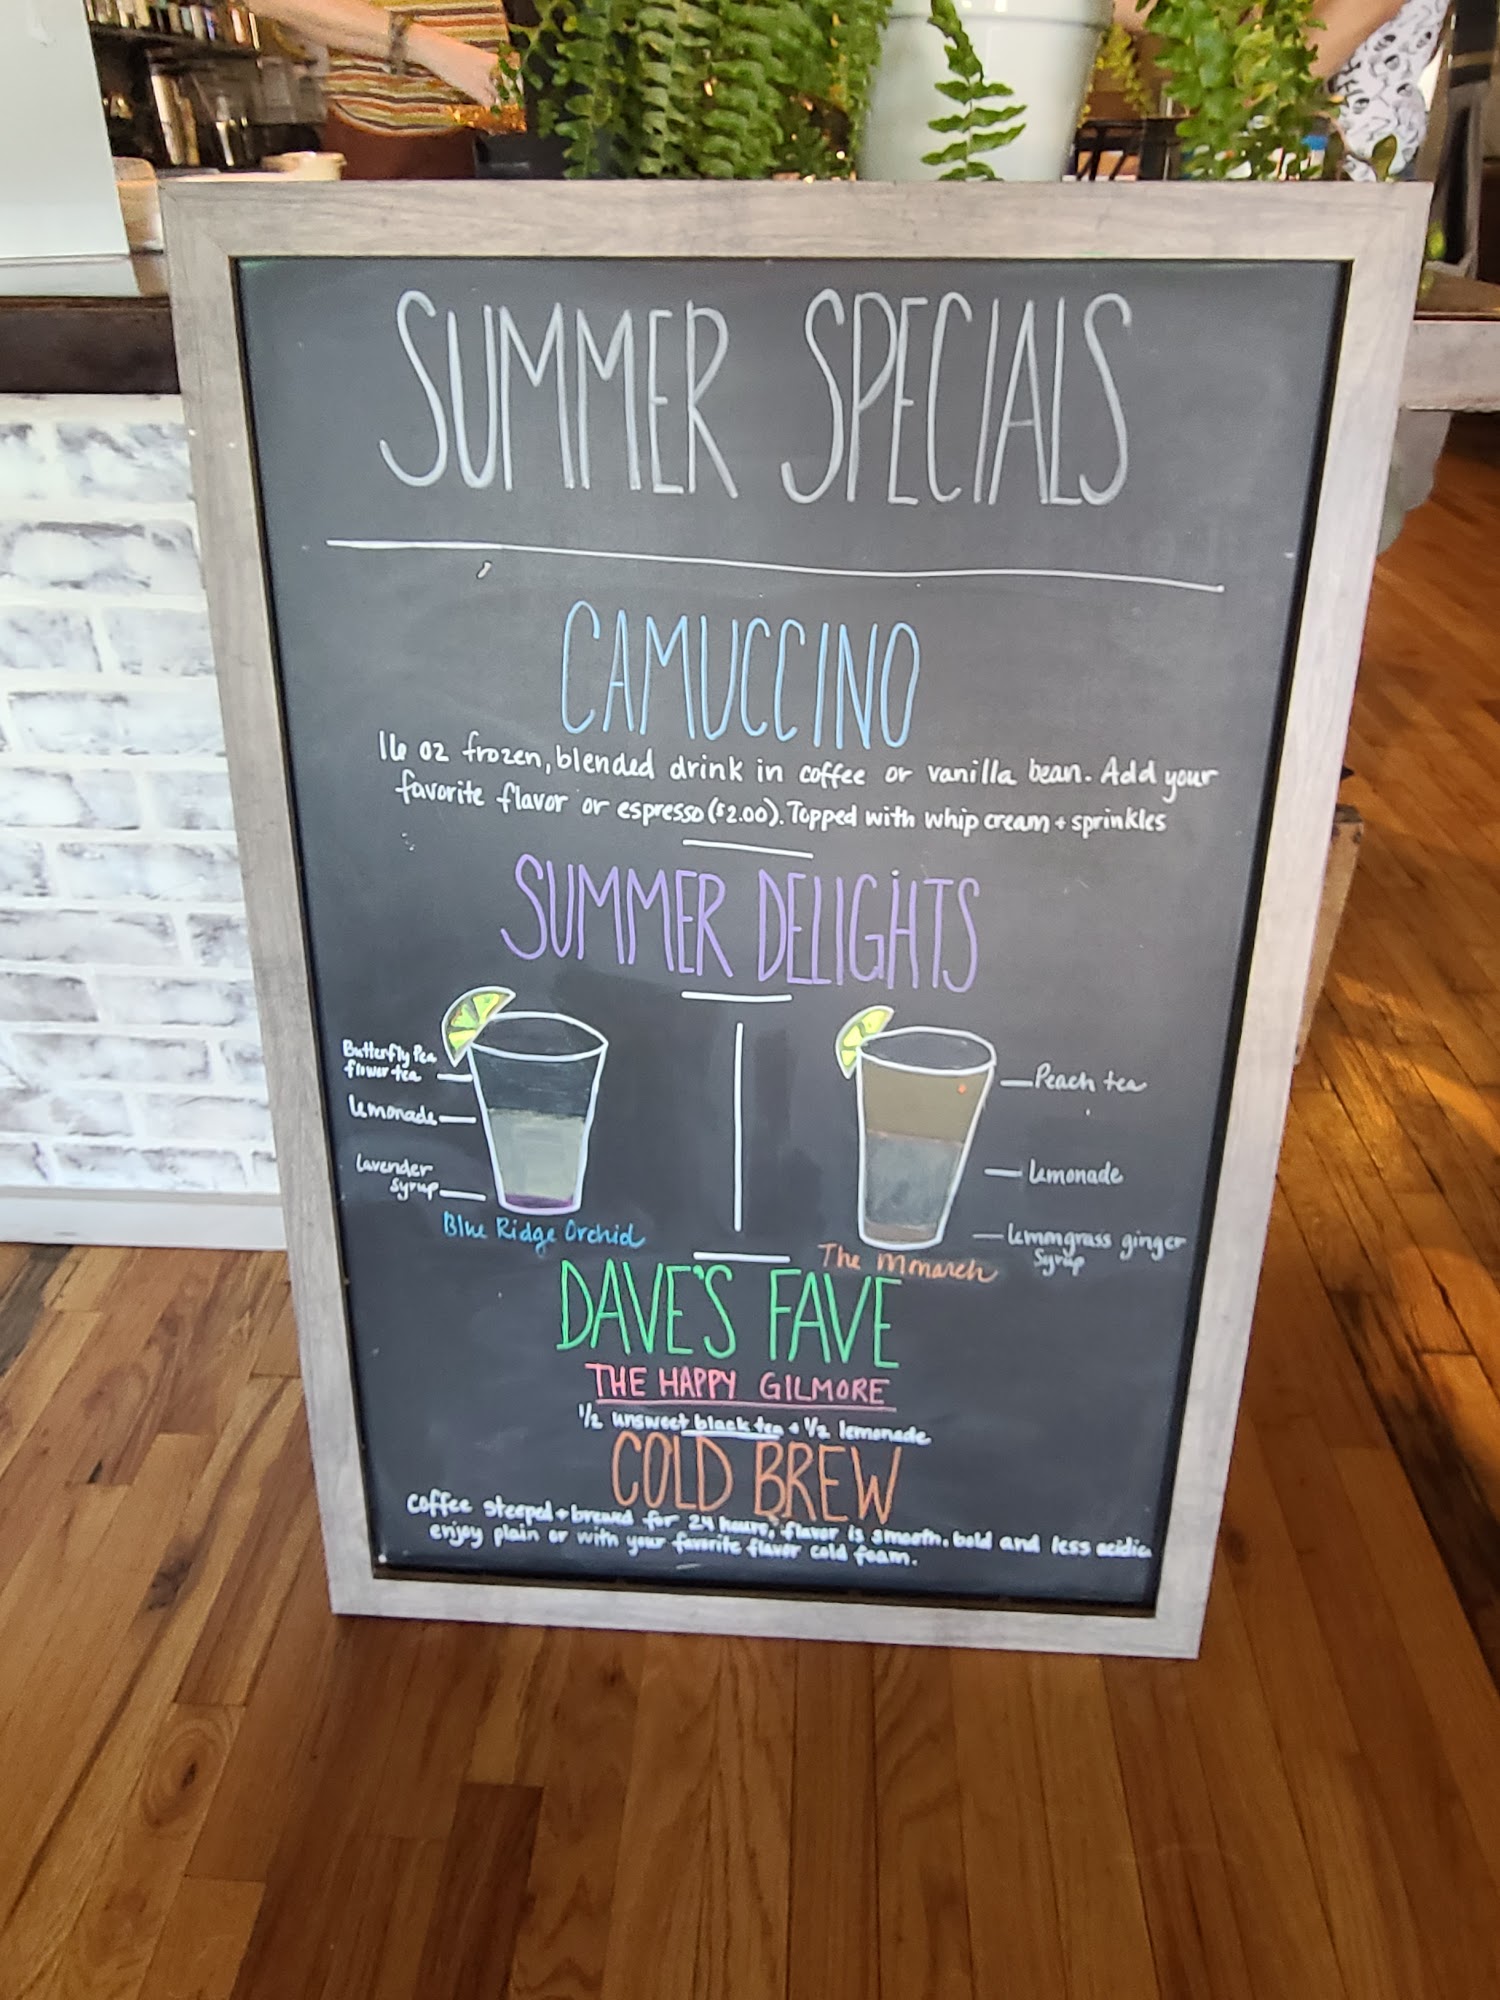 SUMMER SPECIALS
CAMUCCINO
16 oz frozen, blended drink in coffee or vanilla bean. Add your
favorite flavor or espresso ($2.00). Topped with whip cream + sprinkles
SUMMER DELIGHTS
Butterfly Pea
flower tea
lemonade
lavender
syrup
Blue Ridge Orchid
Peach tea
lemonade
lemongrass ginger
syrup
The Monarch
DAVE'S FAVE
THE HAPPY GILMORE
1/2 unsweet black tea + 1/2 lemonade
COLD BREW
coffee steeped + brewed for 24 hours, flavor is smooth, bold and less acidic
enjoy plain or with your favorite flavor cold foam.